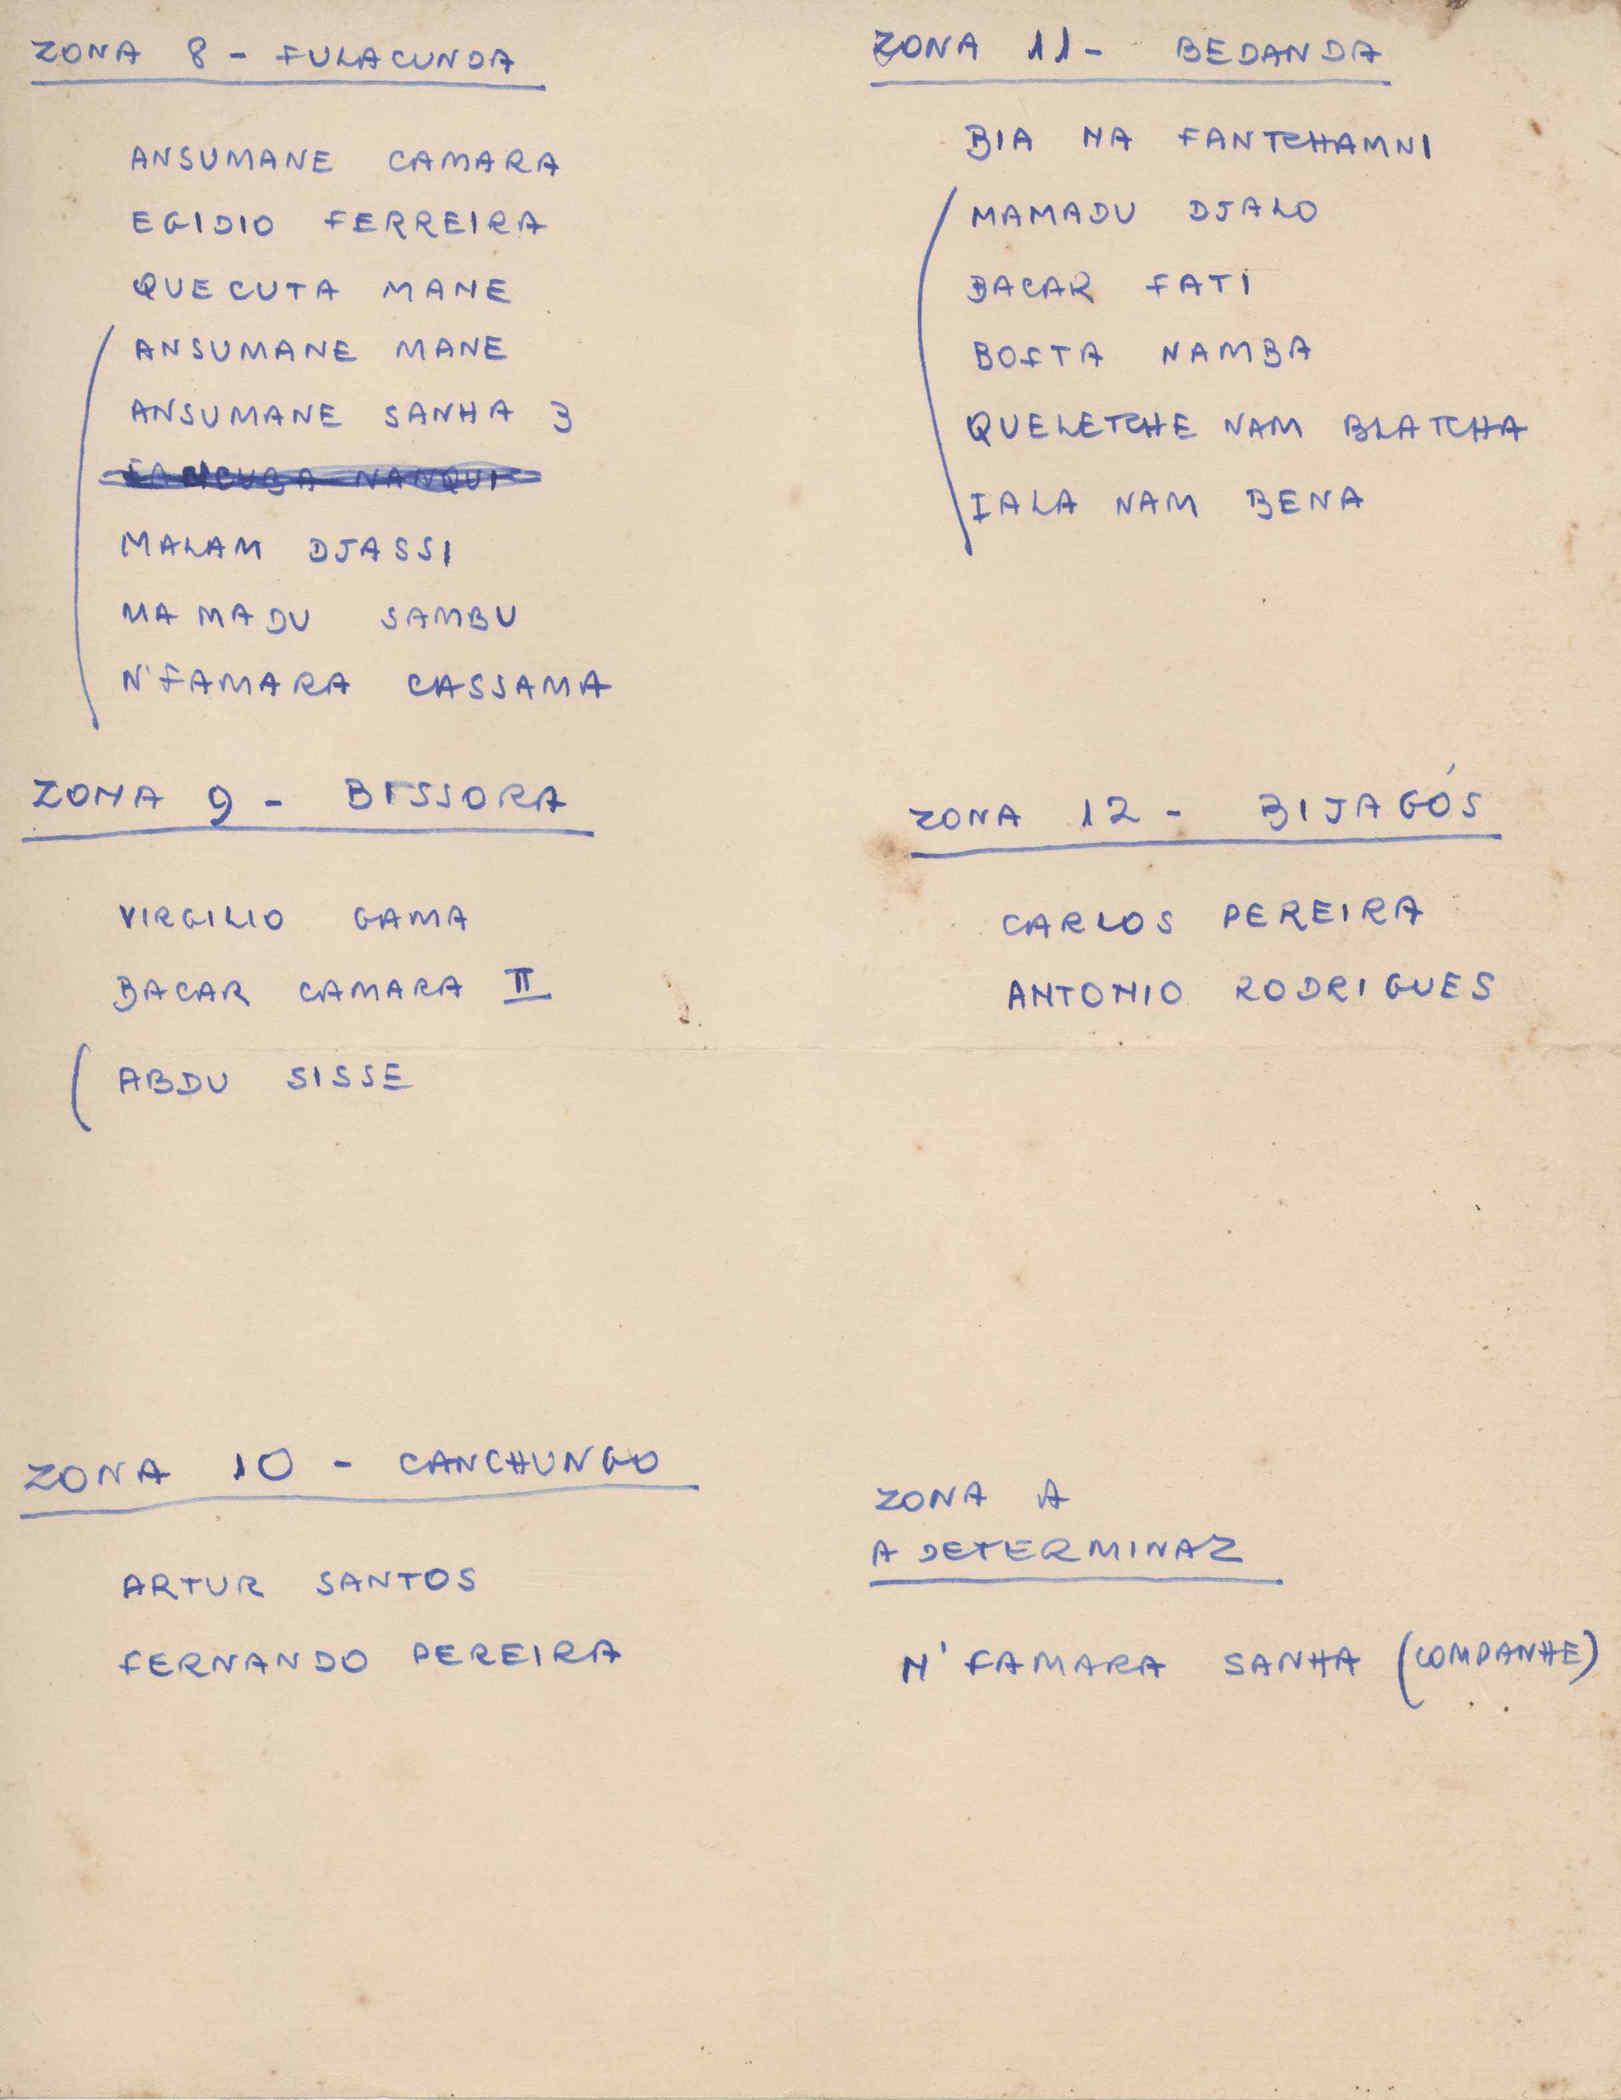 ZONA 8 - FULACUNDA
ANSUMANE CAMARA
EGIDIO FERREIRA
QUECUTA MANE
ANSUMANE MANE
ANSUMANE SANHA 3
MALAM DJASSI
MAMADU SAMBU
N'FAMARA CASSAMA
ZONA 9 - BISSORA
VIRGILIO GAMA
BACAR CAMARA II
ABDU SISSE
ZONA 10 - CANCHUNGO
ARTUR SANTOS
FERNANDO PEREIRA
ZONA 11 - BEDANDA
BIA NA FANTCHAMNI
MAMADU DJALO
BACAR FATI
BOFTA NAMBA
QUELETCHE NAM BLATCHA
IALA NAM BENA
ZONA 12 - BIJAGÓS
CARLOS PEREIRA
ANTONIO RODRIGUES
ZONA A
A DETERMINAR
N'FAMARA SANHA (COMPANHE)